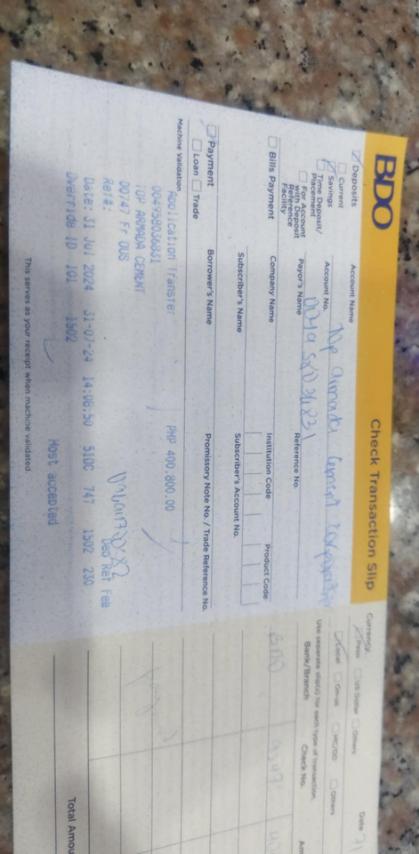 BDO
Check Transaction Slip
Deposits
Current
Savings
Time Deposit/
Placement
For Account
with Deposit
Reference
Facility
Account Name
Top Armada Cement
Account No.
Payor's Name
Reference No.
Bills Payment
Company Name
Institution Code
Product Code
Subscriber's Name
Subscriber's Account No.
Payment
Loan
Trade
Borrower's Name
Promissory Note No. / Trade Reference No.
Machine Validation
Application Transfer
PHP 400,800.00
TOP ARMADA CEMENT
00747 Fr OUS
Ref#:
Deo Ret Fee
Date: 31 Jul 2024 31-07-24 14:06:50 510C 747 1502 230
Override ID 101 1502
Host accepted
This serves as your receipt when machine validated.
Currency:
Peso
US Dollar
Others
Date
Local
Others
Use separate slip(s) for each type of transaction.
Bank/Branch
Check No.
BDO
Total Amou